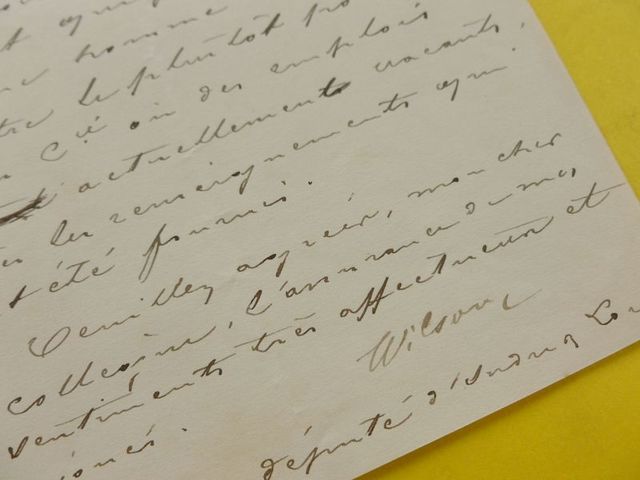 homme
le plutôt
Cie où des emplois
actuellement vacants,
les renseignements qui
été fournis.
Veuillez agréer, mon cher
collègue, l'assurance de mes
sentiments très affectueux et
Wilson
député d'Indre & Loi